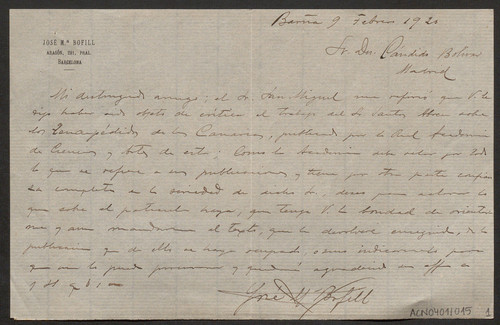 JOSÉ M.ª BOFILL
ARAGÓN, 281, PRAL.
BARCELONA
Barna 9 Febrero 1921
Sr. Dn. Cándido Bolívar
Madrid
Mi distinguido amigo: el Sr. San Miguel me refirió que V. le
dijo haber sido objeto de crítica el trabajo del Sr. Santos Abreu sobre
los de las Canarias, publicado por la Real Academia
de Ciencias y Artes de esta; Como la Academia debe velar por todo
lo que se refiere a sus publicaciones y tiene por otra parte
completa en la seriedad de dicho Sr. desea para aclarar lo
que sobre el particular haya, que tenga V. la bondad de
me y aun mandarme el texto, que le devolveré enseguida, de la
publicación que de ello se haya ocupado, o indicármelo para
que me la pueda procurar y quedará agradecido su affmo
q b m
José M. Bofill
ACN0401/015
1